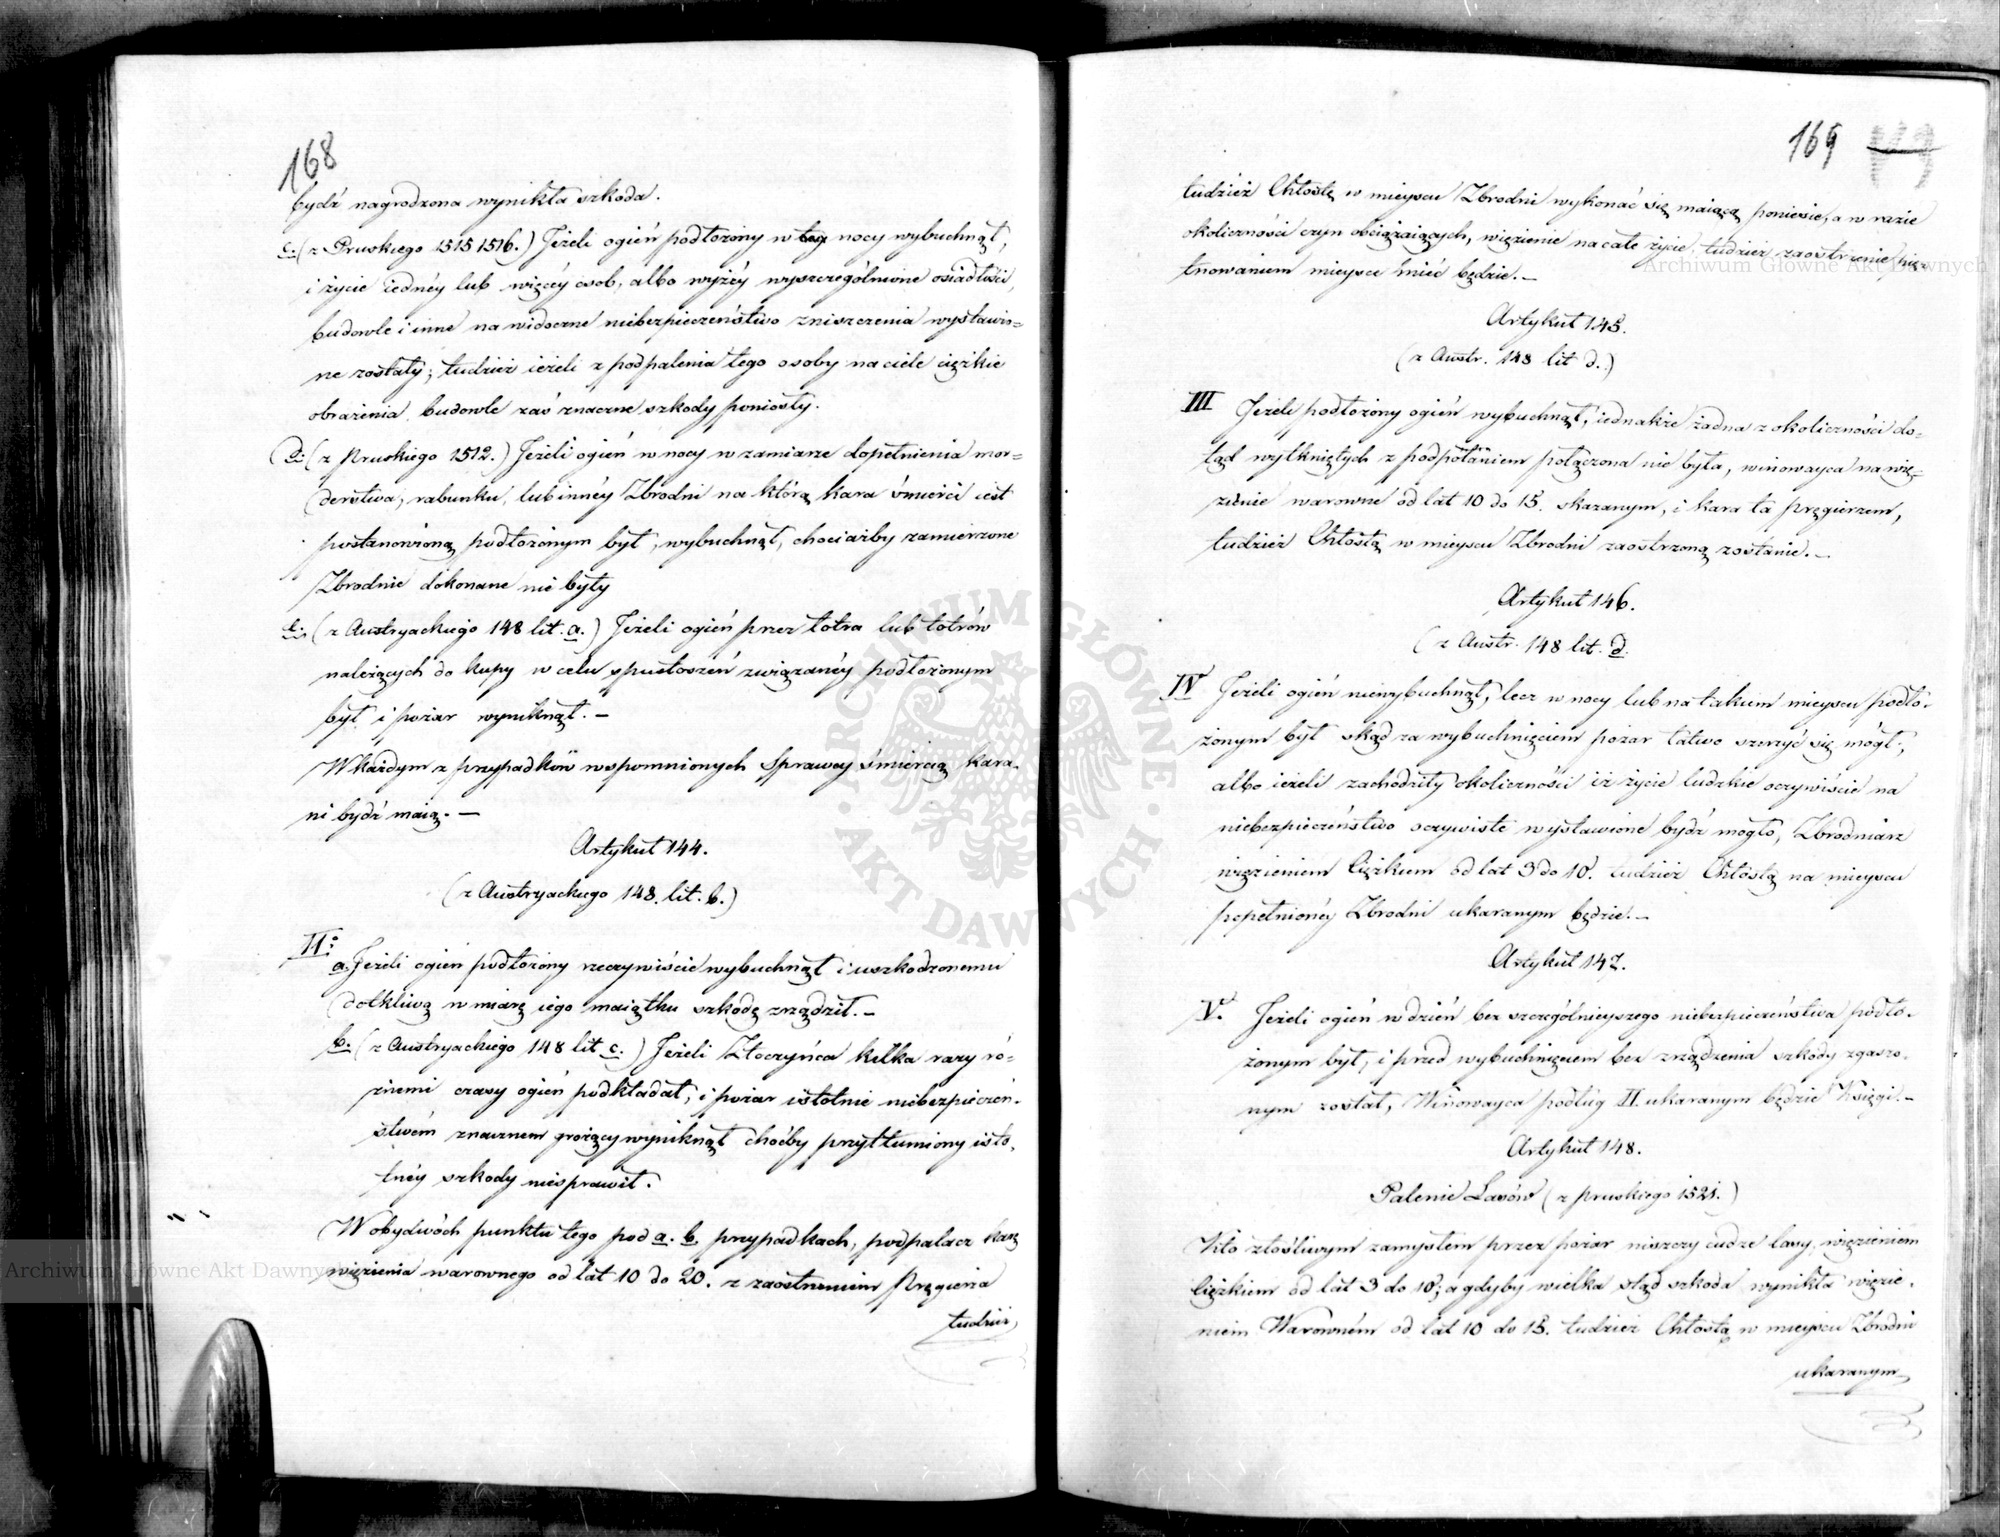 168
bydź nagrodzona wynikła szkoda.
c. (z Pruskiego 1515 1516.) Jeżeli ogień podłożony w tey nocy wybuchnął,
i życie iednéy lub więcéy osob, albo wyżéy wyszczególnione osiadłości,
budowle i inne na widoczne niebezpieczeństwo zniszczenia wystawio=
ne zostały; tudzież ieżeli z podpalenia tego osoby na ciele ciężkie
obrażenia, budowle zaś znaczne szkody poniosły.
d. (z Pruskiego 1512.) Jeżeli ogień w nocy w zamiarze dopełnienia mor=
derstwa, rabunku, lub innéy Zbrodni na którą kara śmierci iest
postanowioną podłożonym był, wybuchnął, chociażby zamierzone
Zbrodnie dokonane nie były
e. (z Austryackiego 148 lit. a.) Jeżeli ogień przez łotra lub łotrów
należących do kupy w celu spustoszeń związanéy podłożonym
był i pożar wyniknął. –
W każdym z przypadków wspomnionych Sprawcy śmiercią kara-
ni bydź maią. –
Artykuł 144.
(z Austryackiego 148. lit. b.)
II. a. Jeżeli ogień podłożony rzeczywiście wybuchnął i uszkodzonemu
dotkliwą w miarę iego maiątku szkodę zrządził. –
b. (z Austryackiego 148 lit c.) Jeżeli Złoczyńca kilka razy ró=
żnemi czasy ogień podkładał, i pożar istotnie niebezpieczeń-
stwem znacznem grożący wyniknął choćby przytłumiony isto-
tnéy szkody niesprawił.
W obydwóch punktu tego pod a. b. przypadkach, podpalacz karę
więzienia warownego od lat 10 do 20. z zaostrzeniem Pręgierza
tudzież
169
tudzież Chłostę w mieyscu Zbrodni wykonać się maiącą poniesie, a w razie
okoliczności czyn obciążaiących, więzienie na całe życie, tudzież zaostrzenie pię-
tnowaniem mieysce mieć będzie. –
Artykuł 145.
(z Austr. 148 lit d.)
III Jeżeli podłożony ogień wybuchnął, iednakże żadna z okoliczności do-
tąd wytkniętych z podpaleniem połączona nie była, winowayca na wię-
zienie warowne od lat 10 do 15. skazanym, i kara ta pręgierzem,
tudzież Chłostą w mieyscu Zbrodni zaostrzoną zostanie. –
Artykuł 146.
(z Austr. 148 lit. d.
IV Jeżeli ogień niewybuchnął, lecz w nocy lub na takiem mieyscu podło-
żonym był skąd za wybuchnięciem pożar łatwo szerzyć się mógł,
albo ieżeli zachodziły okoliczności iż życie ludzkie oczywiście na
niebezpieczeństwo oczywiste wystawione bydź mogło, Zbrodniarz
więzieniem Ciężkiem od lat 3 do 10. tudzież Chłostą na mieyscu
popełnionéy Zbrodni ukaranym będzie. –
Artykuł 147.
V. Jeżeli ogień w dzień bez szczególnieyszego niebezpieczeństwa podło-
żonym był, i przed wybuchnięciem bez zrządzenia szkody zgaszo-
nym został, Winowayca podług II. ukaranym będzie Księgi. –
Artykuł 148.
Palenie Lasów (z pruskiego 1521.)
Kto złośliwym zamysłem przez pożar niszczy cudze lasy, więzieniem
Ciężkiem od lat 3 do 10; a gdyby wielka stąd szkoda wynikła więzie-
niem Warowném od lat 10 do 15. tudzież Chłostą w mieyscu Zbrodni
ukaranym
Archiwum Główne Akt Dawnych
Archiwum Główne Akt Dawnych
ARCHIWUM GŁÓWNE · AKT DAWNYCH ·